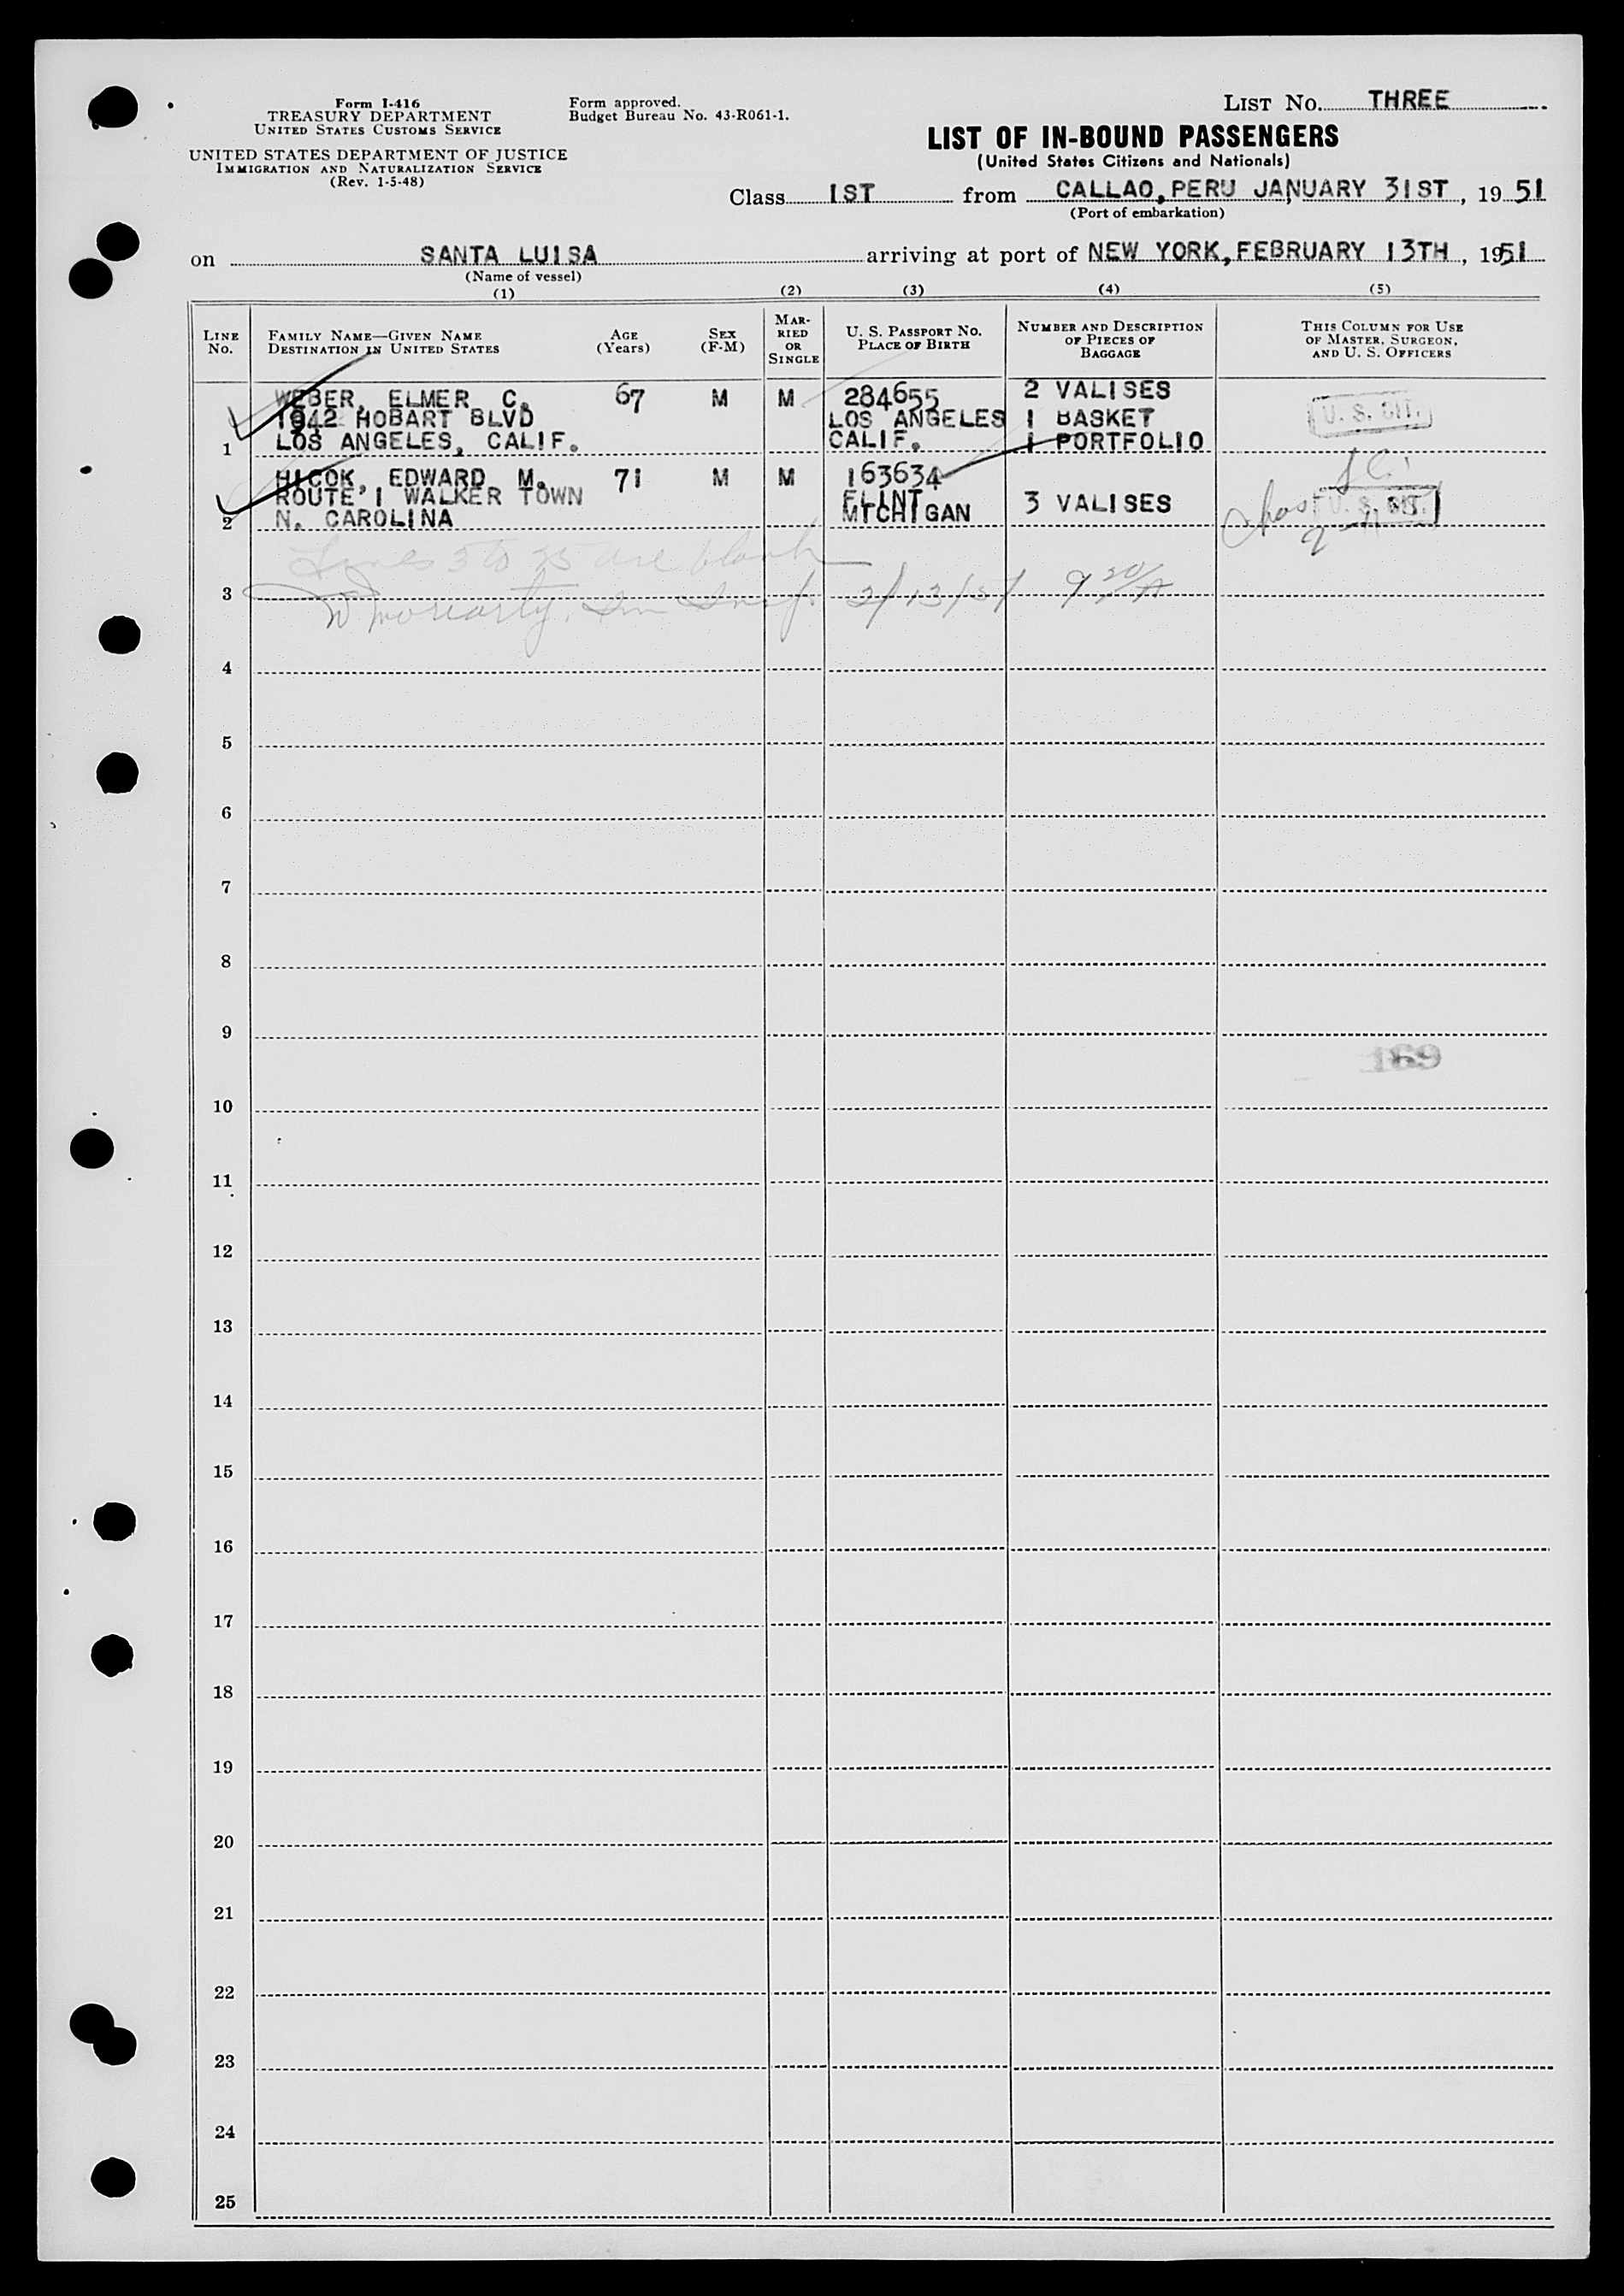 Form I-416
TREASURY DEPARTMENT
UNITED STATES CUSTOMS SERVICE
UNITED STATES DEPARTMENT OF JUSTICE
IMMIGRATION AND NATURALIZATION SERVICE
(Rev. 1-5-48)
Form approved.
Budget Bureau No. 43-R061-1.
LIST NO. THREE
LIST OF IN-BOUND PASSENGERS
(United States Citizens and Nationals)
Class 1ST from CALLAO, PERU JANUARY 31ST, 1951
(Port of embarkation)
on SANTA LUISA arriving at port of NEW YORK, FEBRUARY 13TH, 1951
(Name of vessel)
(1) (2) (3) (4) (5)
LINE NO.
FAMILY NAME—GIVEN NAME
DESTINATION IN UNITED STATES
AGE (Years)
SEX (F-M)
MARRIED OR SINGLE
U. S. PASSPORT NO.
PLACE OF BIRTH
NUMBER AND DESCRIPTION
OF PIECES OF
BAGGAGE
THIS COLUMN FOR USE
OF MASTER, SURGEON,
AND U. S. OFFICERS
WEBER, ELMER C. 67 M M 284655 2 VALISES
1942 HOBART BLVD LOS ANGELES 1 BASKET U. S. CIT.
1 LOS ANGELES, CALIF. CALIF. 1 PORTFOLIO
HICOK, EDWARD M. 71 M M 163634
ROUTE 1 WALKER TOWN FLINT 3 VALISES U. S. CIT.
2 N. CAROLINA MICHIGAN
Lines 3 to 25 are blank
3
W Moriarty, Imm Insp. 2/13/51 9 30/A
4
5
6
7
8
9
169
10
11
12
13
14
15
16
17
18
19
20
21
22
23
24
25